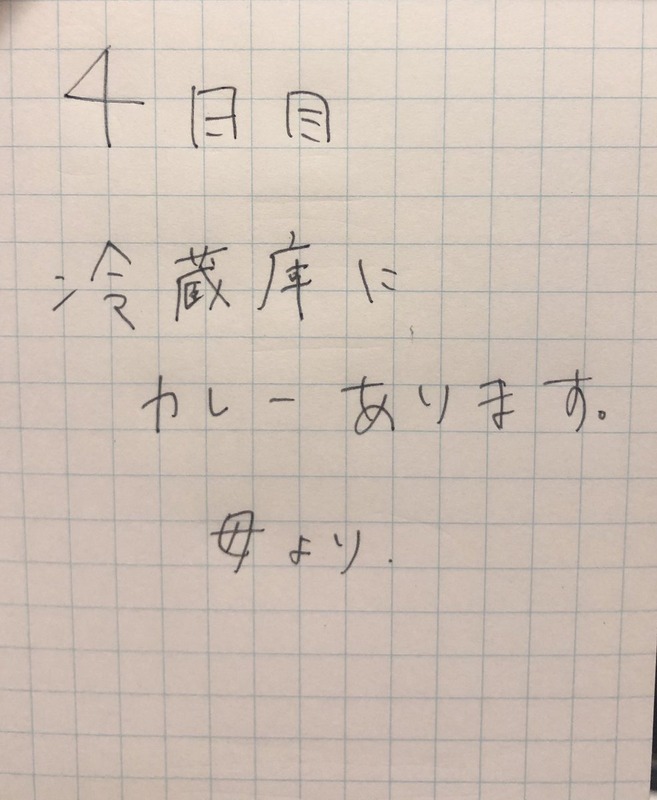 4日目
冷蔵庫に
カレーあります。
母より.